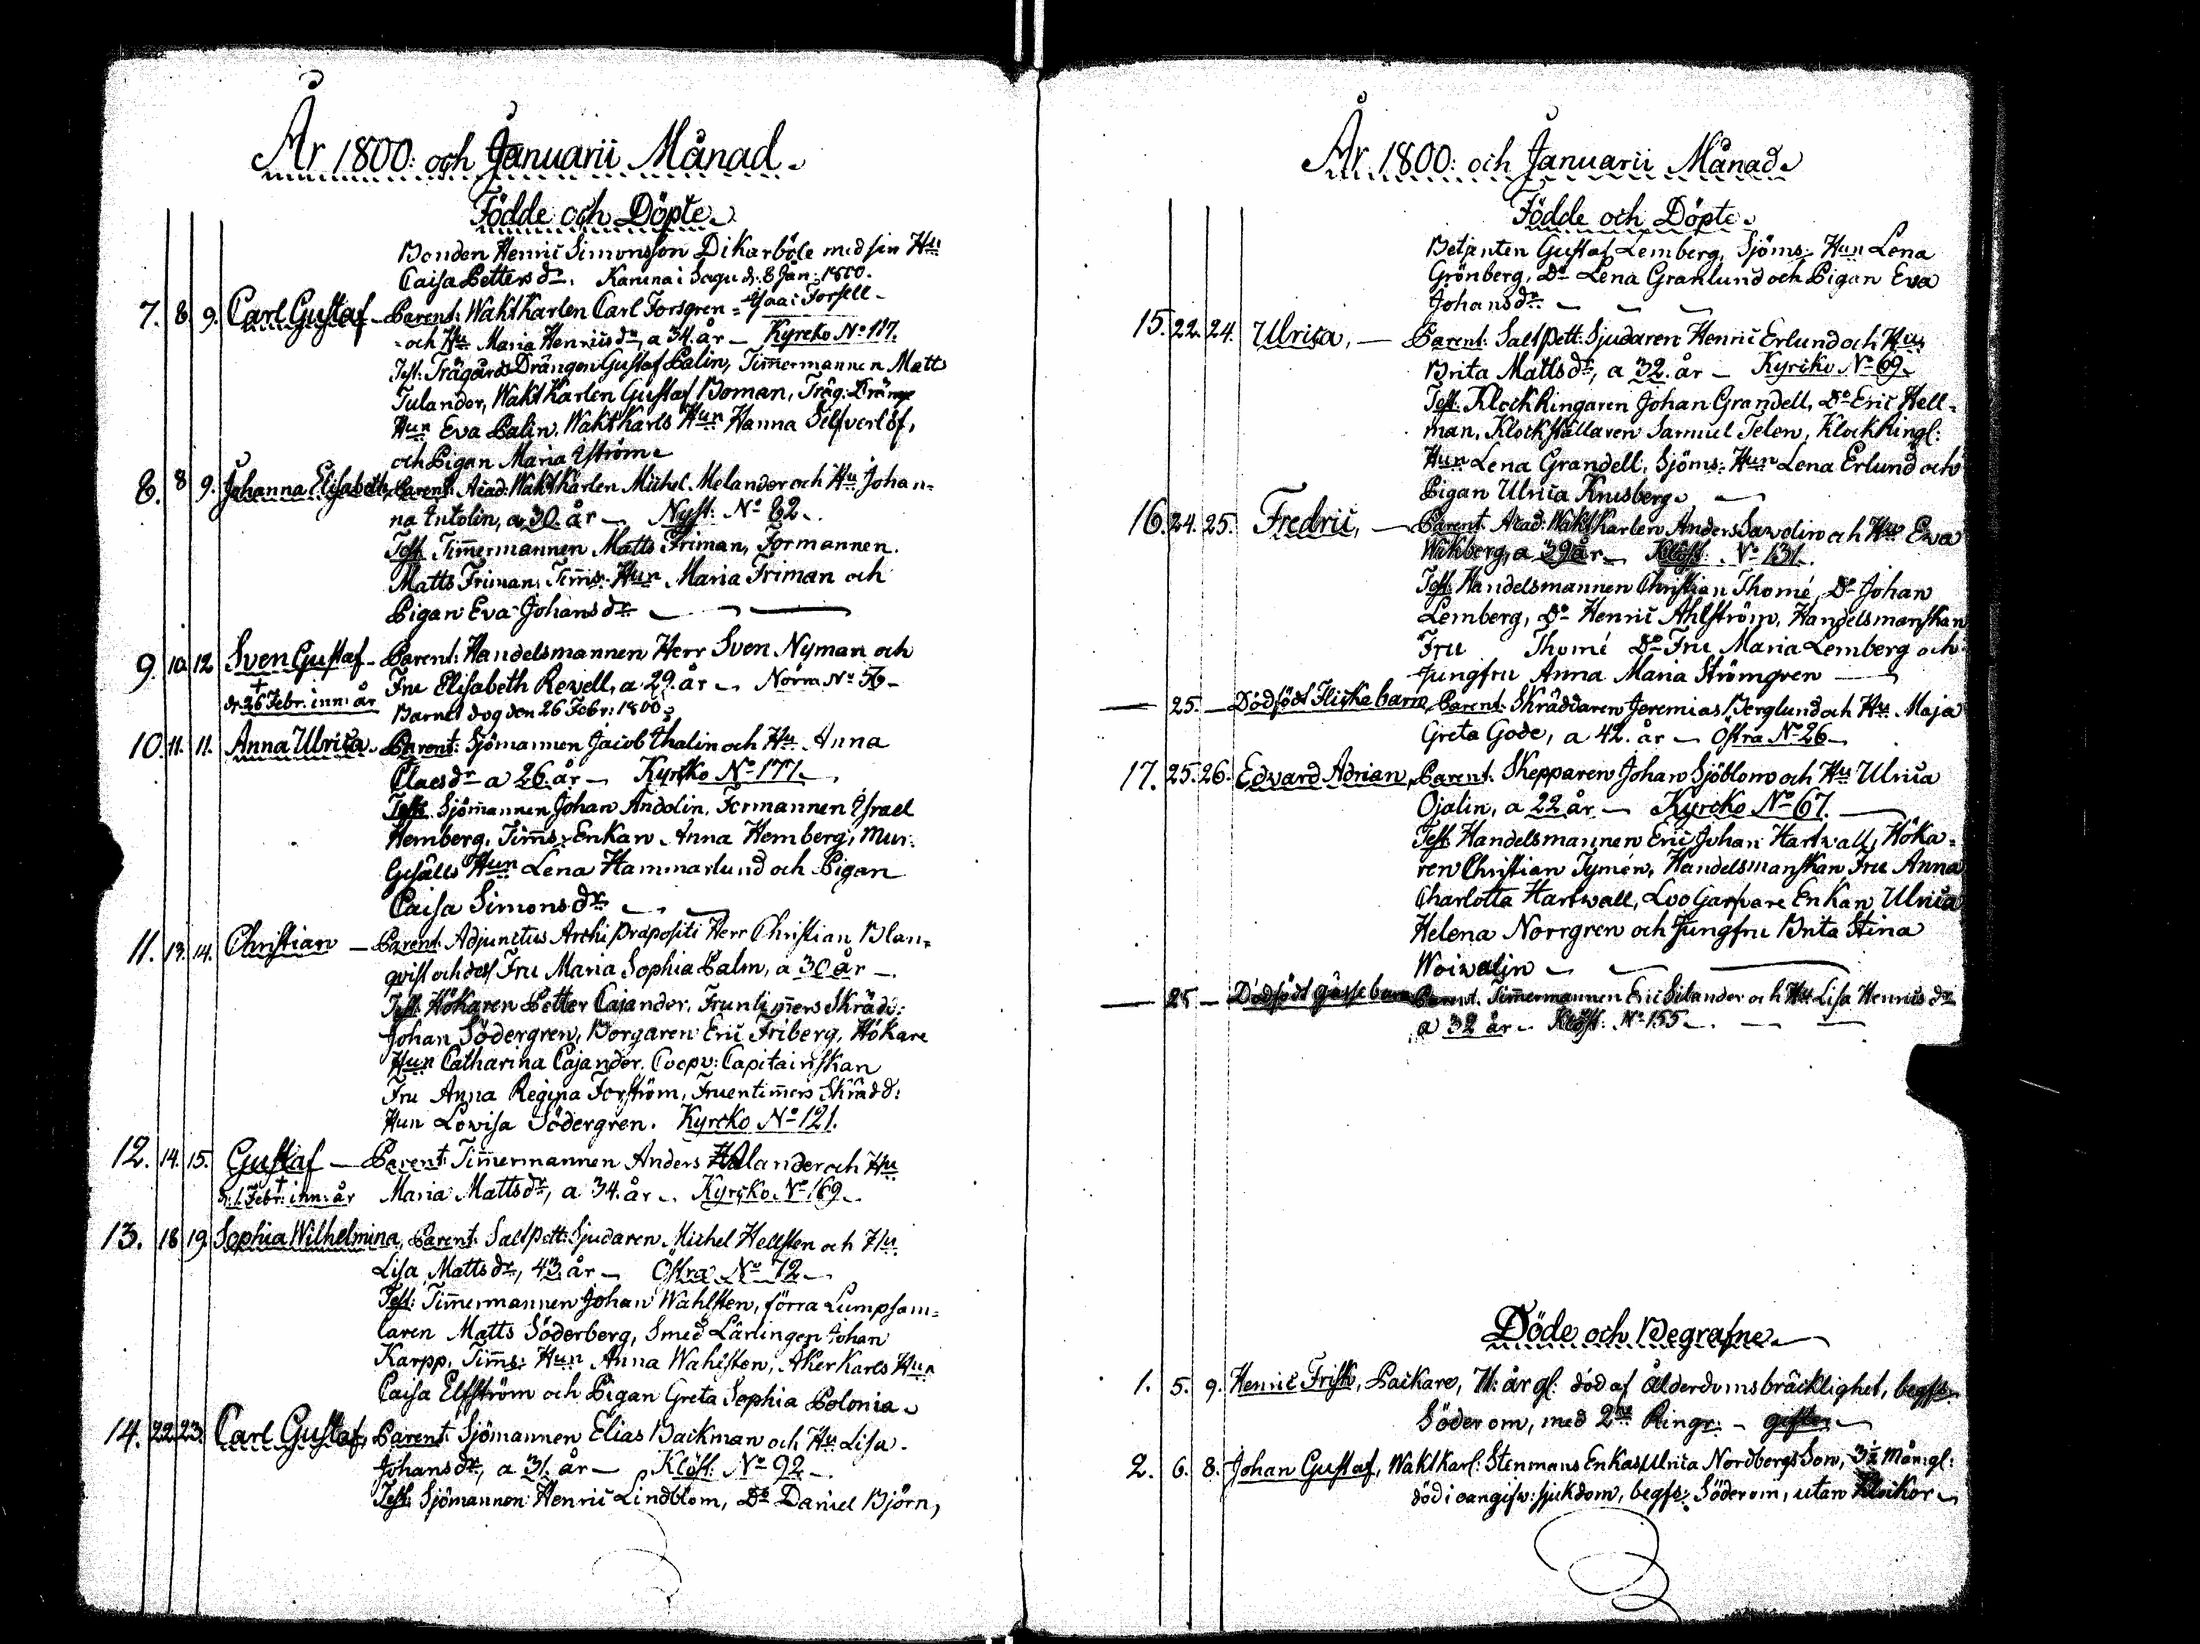 År 1800: och Januarii Månad
Födde och Döpte
Bonden Henric Simonsson Dikarböle med sin Hu
Caisa Petters dr. Karuna i Sagu d: 8 Jan: 1800.
7. 8. 9. Carl Gustaf Parent: Wakt Karlen Carl Forsgren
och Hu Maria Henrics dr, a 34. år Kyrcko No 117.
Test: Trägårds Drängen Gustaf Palin, Tim̅ermannen Matts
Tulander, Wakt Karlen Gustaf Boman, Träg: Dräng
Hun Eva Palin, Wakt Karls Hun Hanna Silfverlöf,
och Pigan Maria Yström
8. 8 9. Johanna Elisabeth, Parent: Acad: Wakt Karlen Michel Melander och Hu Johan=
na Antolin, a 30. år Nyst: No 82.
Test. Tim̅ermannen Matts Friman, Formannen
Matts Friman, Tim̅s: Hun Maria Friman och
Pigan Eva Johans dr
9. 10. 12 Sven Gustaf Parent: Handelsmannen Herr Sven Nyman och
+ Fru Elisabeth Revell, a 29. år Norra No 56
d. 26 Febr. inn: år Barnet dog den 26 Febr: 1800
10. 11. 11. Anna Ulrica Parent: Sjömannen Jacob Thalin och Hu Anna
Claes dr a 26. år Kyrcko No 177.
Test. Sjöm̅annen Johan Andolin, Formannen Israel
Hemberg, Tim̅s: Enkan Anna Hemberg, Mur:
Gesälls Hun Lena Hammarlund och Pigan
Caisa Simons dr
11. 13. 14. Christian Parent: Adjunctus Archi Præpositi Herr Christian Blan=
qvist och dess Fru Maria Sophia Palm, a 30 år
Test: Hökaren Petter Cajander, Fruntim̅ers Skräd:
Johan Södergren, Borgaren Eric Friberg, Hökare
Hun Catharina Cajander, Coopv: Capitainskan
Fru Anna Regina Forström, Fruentim̅ers Skrädd:
Hun Lovisa Södergren. Kyrcko No 121.
12. 14. 15. Gustaf Parent: Tim̅ermannen Anders och Hu
+ d: 1. Febr: inn: år Maria Matts dr, a 34. år Kyrcko No 169
13. 18 19. Sophia Wilhelmina, Parent: Saltpett: Sjudaren Michel Hellsten och Hu
Lisa Matts dr, 43. år Östra No 72
Test: Tim̅ermannen Johan Wahlsten, förra Lumpsam=
laren Matts Söderberg, Smed Lärlingen Johan
Karpp, Tim̅s: Hun Anna Wahlsten, Åker Karls Hun
Caisa Elfström och Pigan Greta Sophia Polonia
14. 22. 23. Carl Gustaf, Parent: Sjömannen Elias Backman och Hu Lisa
Johans dr, a 31. år Klöst: No 92
Test: Sjömannen Henric Lindblom, Do Daniel Björn,
År 1800: och Januarii Månad
Födde och Döpte
Betjenten Gustaf Lemberg, Sjöms: Hun Lena
Grönberg, Do Lena Granlund och Pigan Eva
Johans dr
15. 22. 24. Ulrica, Parent: Saltpett: Sjudaren Henric Erlund och Hu
Brita Matts dr, a 32. år Kyrcko No 69
Test: Klockringaren Johan Grandell, Do Eric Hell=
man, Klockställaren Samuel Telen, Klockringl:
Hun Lena Grandell, Sjöms: Hun Lena Erlund och
Pigan Ulrica Krusberg
16. 24. 25. Fredric, Parent: Acad: Wakt Karlen Anders Savolin och Hu Eva
Wikberg, a 39 år Klöst: No 131.
Test: Handelsmannen Christian Thomé, Do Johan
Lemberg, Do Henric Ahlström, Handelsmanskan
Fru Thomé Do Fru Maria Lemberg och
Jungfru Anna Maria Strömgren
— 25. — Dödfödt Flicke barn, Parent: Skräddaren Jeremias Berglund och Hu Maja
Greta Gode, a 42. år Östra No 26
17. 25. 26. Edvard Adrian, Parent: Skepparen Johan Sjöblom och Hu Ulrica
Ojalin, a 22 år Kyrcko No 67.
Test: Handelsmannen Eric Johan Hartvall, Höka=
ren Christian Tymén, Handelsmanskan Fru Anna
Charlotta Hartwall, Logarfvare Enkan Ulrica
Helena Norrgren och Jungfru Brita Stina
Woivalin
— 25 — Dödfödt gosse barn Parent. Tim̅ermannen Eric Silander och Hu Lisa Henrics dr
a 32 år Klöst: No 155
Döde och Begrafne
1. 5. 9. Henric Frisk, Packare, år gl: död af ålderdoms bräcklighet, begfs.
Söder om, med 2ne Ringr:
2. 6. 8. Johan Gustaf, Wakt Karl: Stenmans Enkas Ulrica Nordbergs Son, 3½ Mån: gl:
död i oangifv: sjukdom, begfs: Söder om, utan Klockor